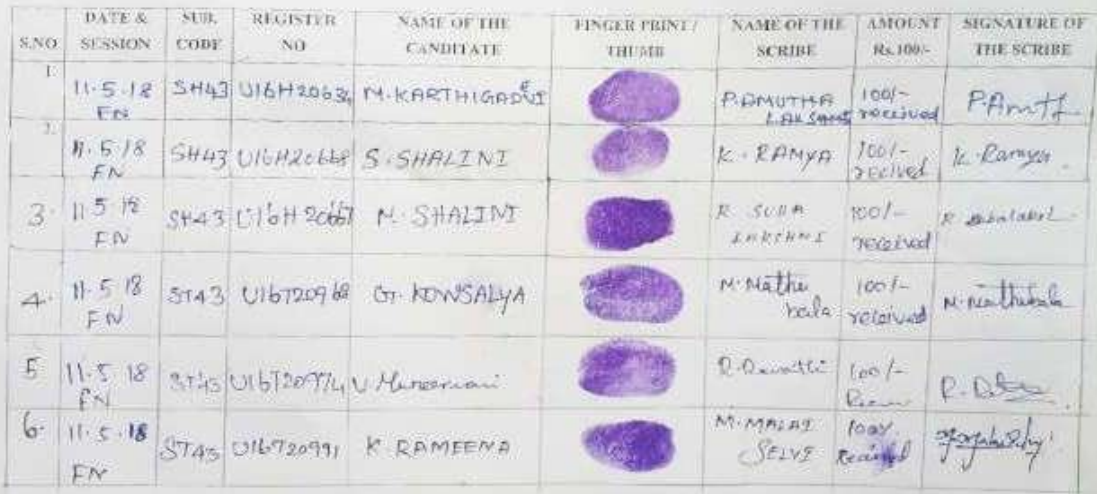 S.NO DATE & SESSION SUB. CODE REGISTER NO NAME OF THE CANDITATE FINGER PRINT / THUMB NAME OF THE SCRIBE AMOUNT Rs.100/- SIGNATURE OF THE SCRIBE
1. 11.5.18 FN SH43 U16H20634 M.KARTHIGADEVI P.AMUTHA 100/- received P.Amu
2. 11.5/18 FN SH43 U16H20668 S.SHALINI K.RAMYA 100/- recived K.Ramya.
3. 11 5 18 FN SH43 U16H20667 M.SHALINI R SUBA LAKSHMI 100/- received R
4. 11.5 18 FN ST43 U16T20968 G.KOWSALYA M.Mathi bala 100/- received M.Mathibala
5 11.5 18 FN ST43 V 100/- R.
6. 11.5.18 FN ST43 U16T20991 K RAMEENA M.MALAI SELVI 100/. Received